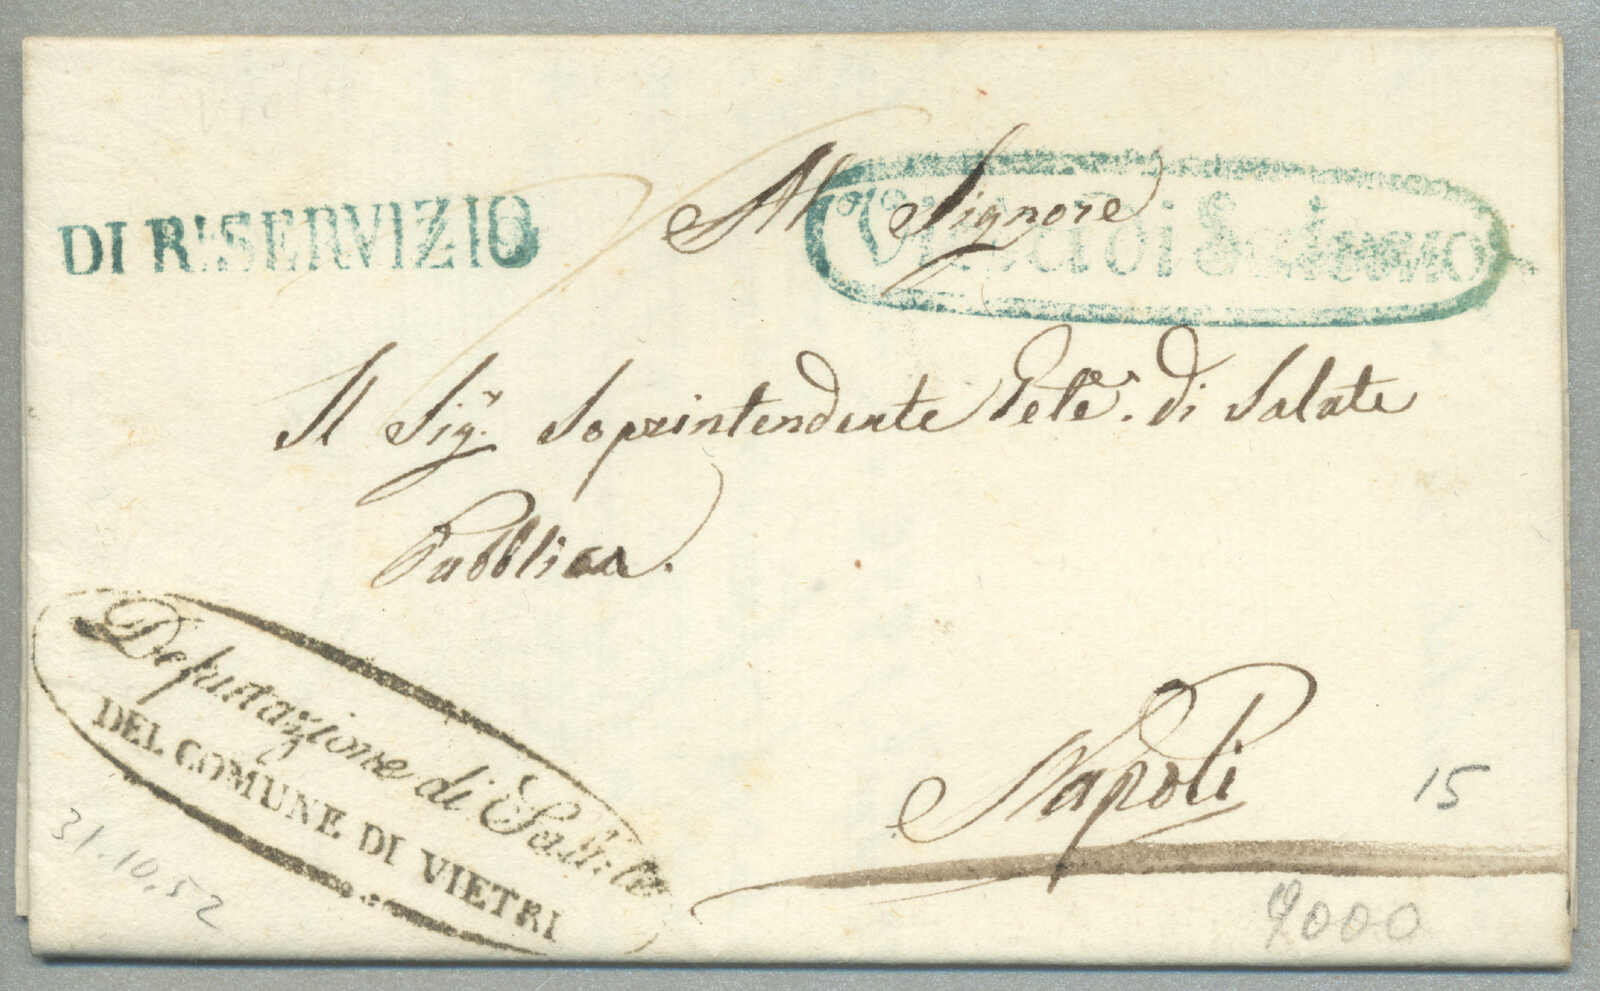 DI RISERVIZIO
Al Signore
Vietri di Salerno
Il Sigr. Soprintendente Gele. di Salute
Pubblica.
Deputazione di Salute
DEL COMUNE DI VIETRI
Napoli
15
31.10.52
9000